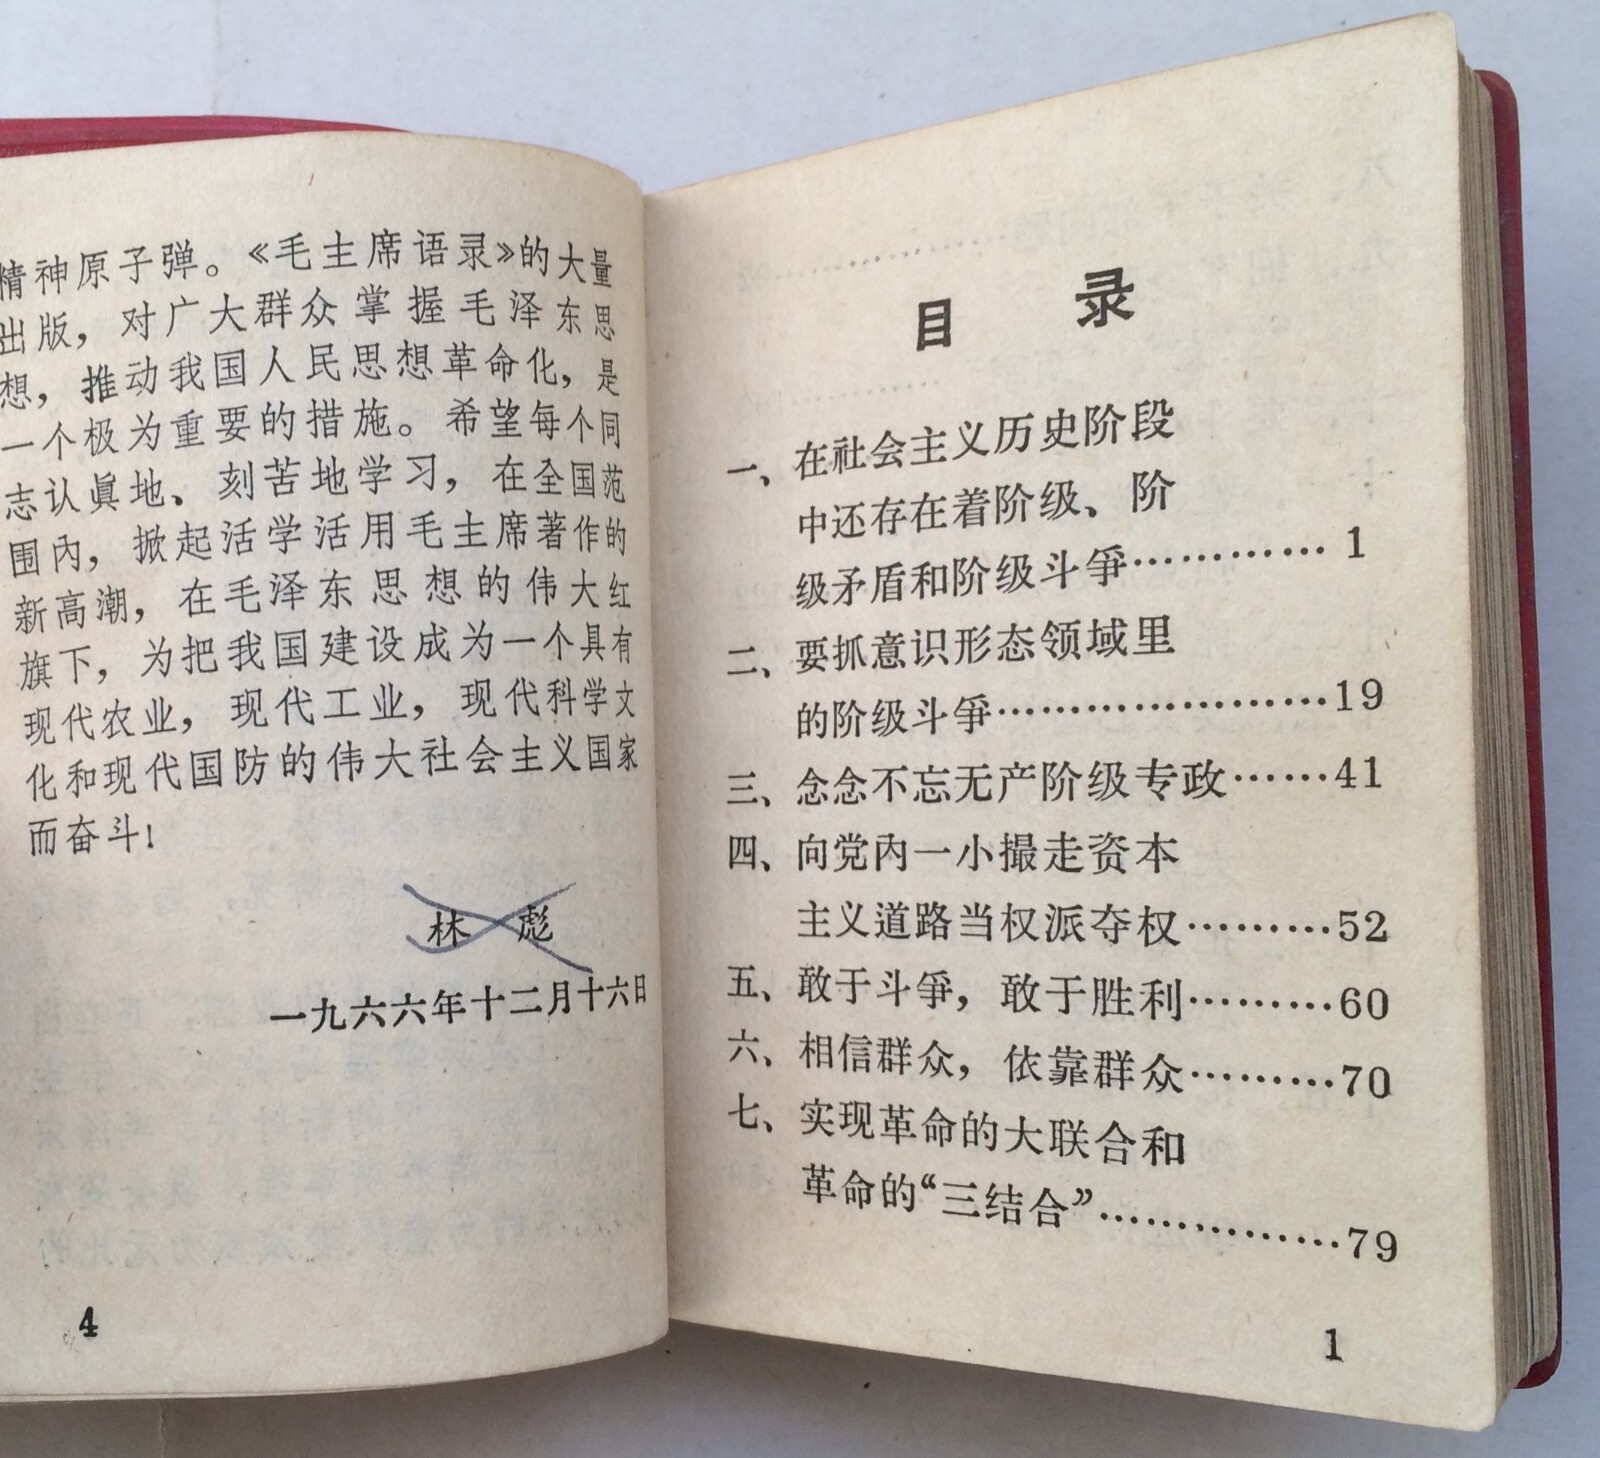 精神原子弹。《毛主席语录》的大量
出版，对广大群众掌握毛泽东思
想，推动我国人民思想革命化，是
一个极为重要的措施。希望每个同
志认眞地、刻苦地学习，在全国范
围內，掀起活学活用毛主席著作的
新高潮，在毛泽东思想的伟大红
旗下，为把我国建设成为一个具有
现代农业，现代工业，现代科学文
化和现代国防的伟大社会主义国家
而奋斗！
林彪
一九六六年十二月十六日
4
目录
一、在社会主义历史阶段
中还存在着阶级、阶
级矛盾和阶级斗爭…………1
二、要抓意识形态领域里
的阶级斗爭…………………19
三、念念不忘无产阶级专政……41
四、向党內一小撮走资本
主义道路当权派夺权………52
五、敢于斗爭，敢于胜利………60
六、相信群众，依靠群众………70
七、实现革命的大联合和
革命的“三结合”……………79
1